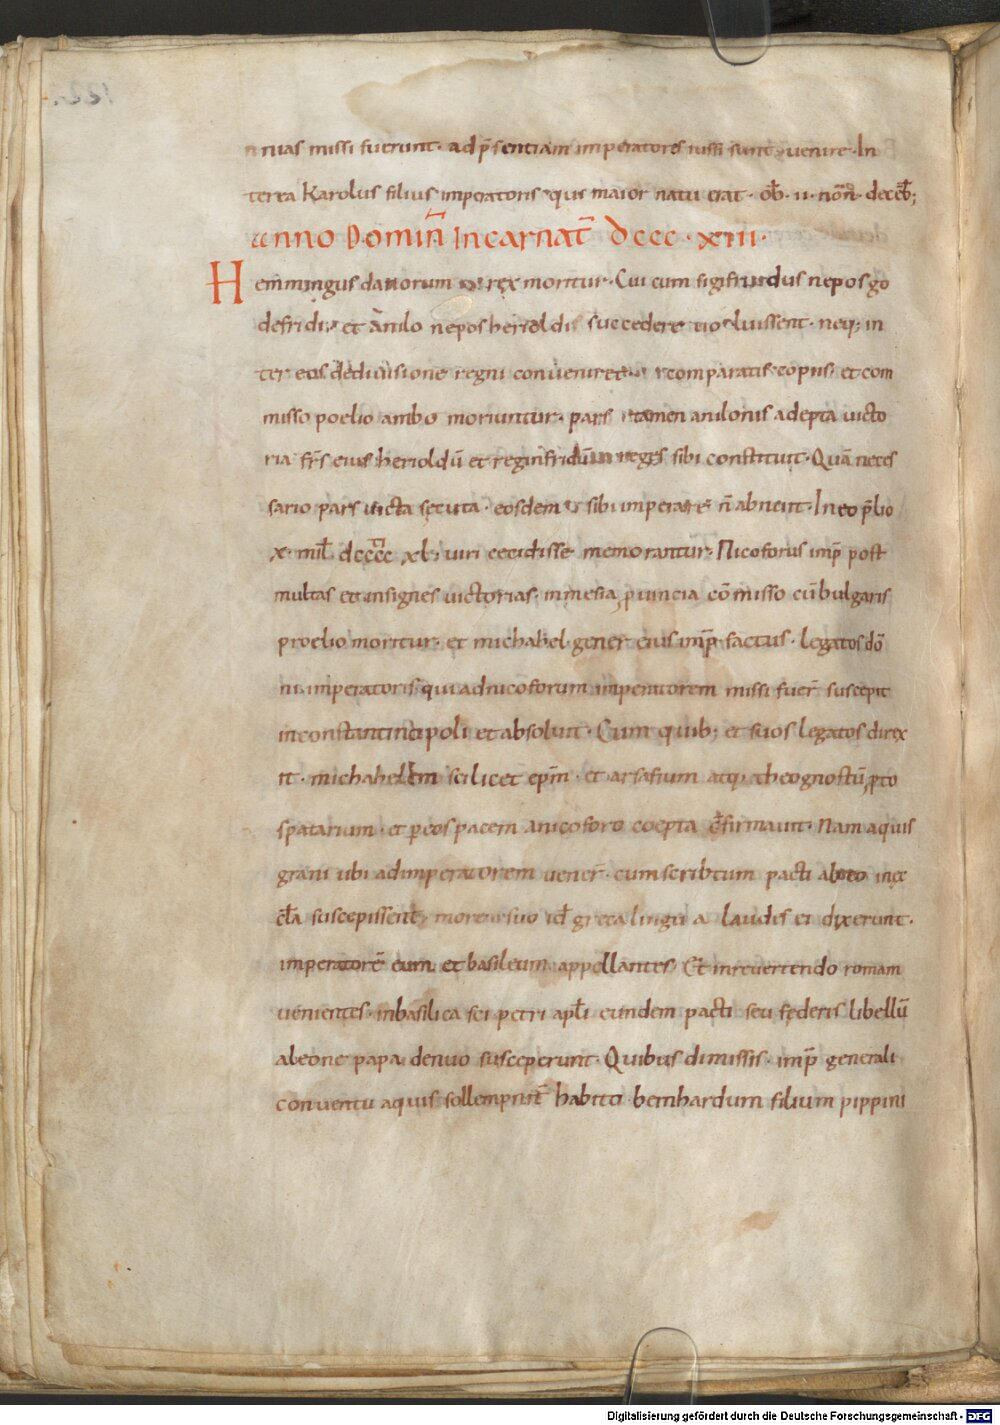 nuas missi fuerunt· ad p̄sentiam imperatores iussi sunt venire· In
terea Karolus filius imperatoris qui maior natu erat· ob̄· ii· non̄· deceb̄;
anno Domin̄ Incarnat̄ dccc·xiii·
Hemmingus danorum rex moritur· Cui cum sigifridus nepos go
defridi, et anulo nepos herioldi succedere uoluissent· neq; in
ter eos dediuisione regni conueniret comparatis copiis et com
misso poelio ambo moriuntur· pars tamen anulonis adepta uicto
ria fr̄s eius herioldū et reginfridū reges sibi constituit· Quā neces
sario pars uicta secuta· eosdem sibi imperare n̄ abnuit· In eo p̄lio
x· mil̄ dcccc xl· uiri cecidisse memorantur· Nicoforus imp̄ post
multas et insignes uictorias· in mesia puincia cōmisso cū bulgaris
proelio moritur· et michahel gener eius imp̄ factus· legatos dō
ni imperatoris qui ad nicoforum imperatorem missi fuer̄ suscepit
in constantinopoli et absoluit· Cum quib; et suos legatos direx
it· michahelem scilicet ep̄m· et arsafium atq; theognostū, pto
spatarium· et p eos pacem a nicoforo coepta cf̄irmauit· Nam aquis
grani ubi ad imperatorem uener̄· cum scribtum pacti ab eo in ec
cl̄a suscepissent, more suo id greca lingua laudes ei dixerunt·
imperatorē eum et basileum appellantes· Et in reuertendo romam
uenientes· in basilica sc̄i petri apl̄i eundem pacti seu federis libellū
a leone papa denuo susceperunt· Quibus dimissis· imp̄ generali
conuentu aquis sollempnit̄ habito bernhardum filium pippini
Digitalisierung gefördert durch die Deutsche Forschungsgemeinschaft - DFG